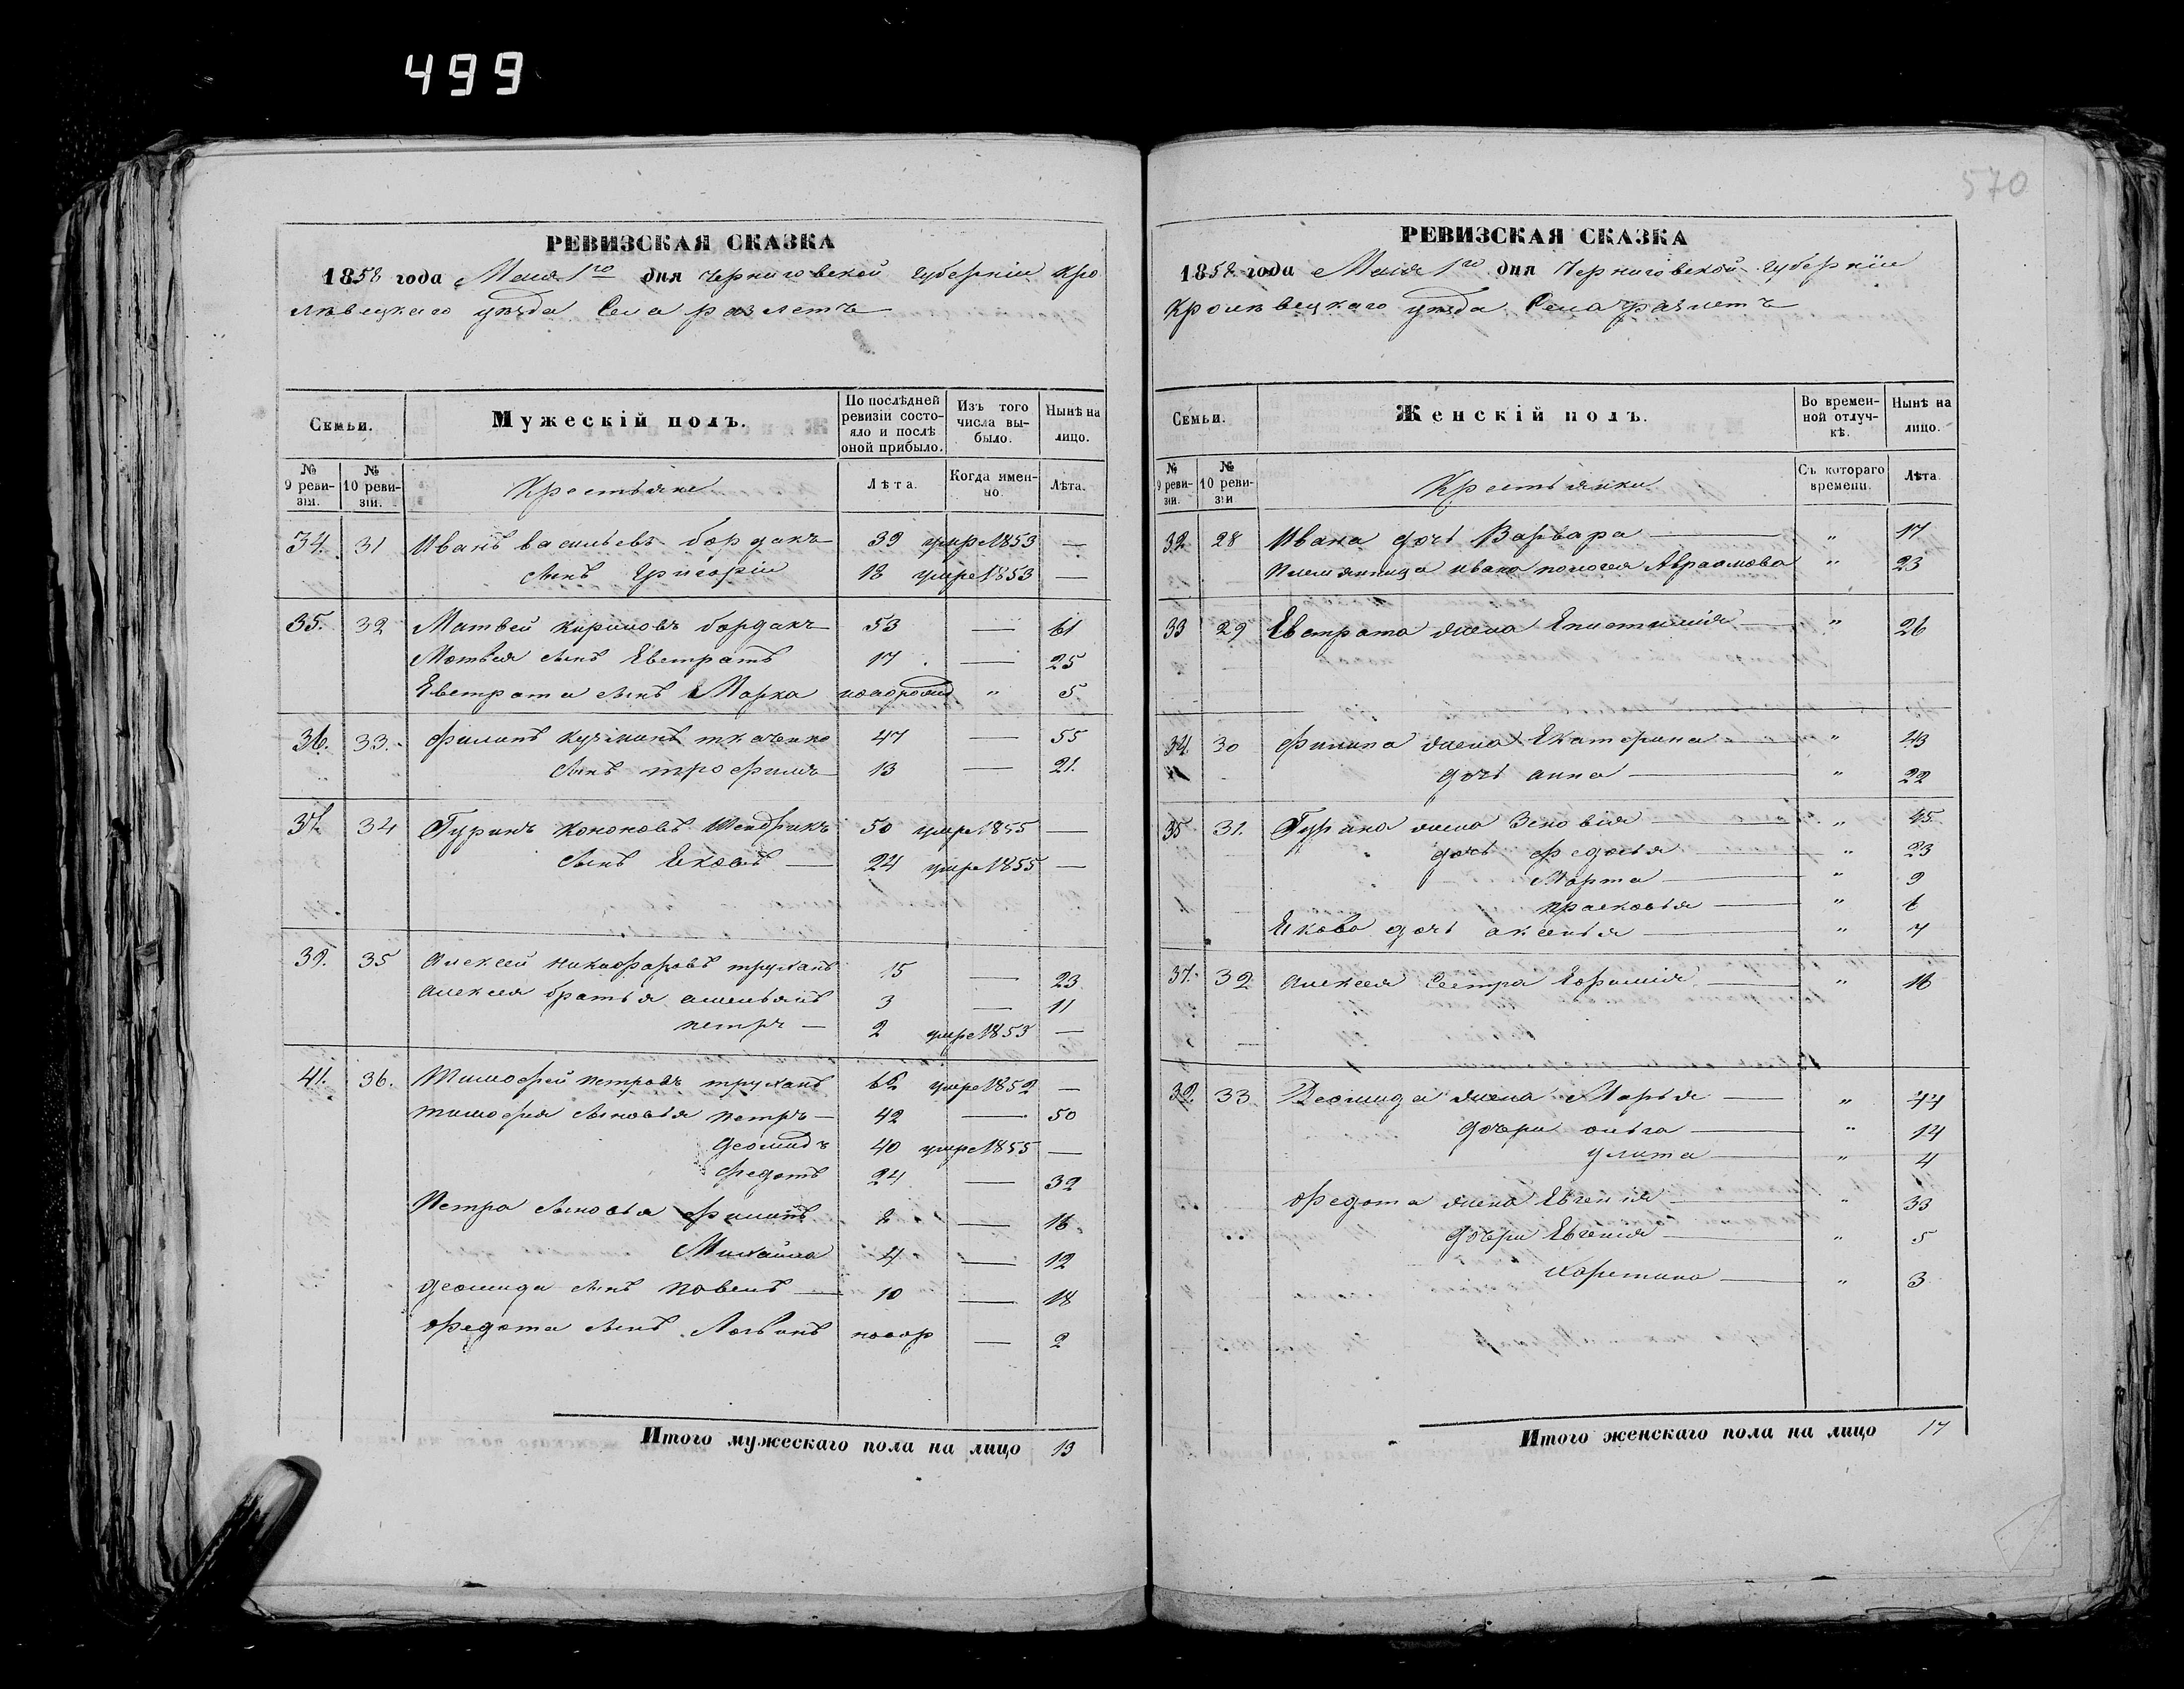 499
570
РЕВИЗСКАЯ СКАЗКА
1858 года Мая 1го дня Черниговской губернии Кро
левецкаго уезда Села разлетъ
Семьи.
Мужескій полъ.
По послѣдней ревизіи состояло и послѣ оной прибыло.
Изъ того числа выбыло.
Нынѣ на лицо.
№ 9 ревизіи.
№ 10 ревизіи.
Крестьяне
Лѣта.
Когда именно.
Лѣта.
34. 31 Иванъ васильевъ бордакъ 39 умре 1853 —
сынъ Григорій 18 умре 1853 —
35. 32 Матвей Кириловъ бордакъ 53 — 61
Матвея сынъ Евстратъ 17 — 25
Евстрата сынъ Марко новорожд " 5
36. 33. Филипъ Кузминъ ткаченко 47 — 55
сынъ трофимъ 13 — 21.
37. 34 Гуринъ Кононовъ Шендрикъ 50 умре 1855 —
сынъ Яковъ — 24 умре 1855 —
39. 35 Алексей никифоровъ труханъ 15 — 23
Алексея братья емельянъ 3 — 11
петръ — 2 умре 1853 —
41. 36. Тимофей петровъ труханъ 62 умре 1852 —
тимофея сыновья петръ — 42 — 50
Деомидъ 40 умре 1855 —
Федотъ 24 — 32
Петра сыновья Филипъ 8 — 16
Михайла 4 — 12
Деомида сынъ павелъ — 10 — 18
Федота сынъ Логвинъ новор — 2
Итого мужескаго пола на лицо 13
РЕВИЗСКАЯ СКАЗКА
1858 года Мая 1го дня Черниговской губерніи
Кролевецкаго уезда Села разлетъ
Семьи.
Женскій полъ.
Во временной отлучкѣ.
Нынѣ на лицо.
№ 9 ревизіи.
№ 10 ревизіи
Крестьянки
Съ котораго времени.
Лѣта.
32 28 Ивана дочь Варвара — " 17
племянница ивана Авраамова " 23
33 29 Евстрата жена Епистимия — " 26
34 30 Филипа жена Екатерина — " 43
дочь анна — " 22
35 31. Гурина жена Зеновия — " 45
дочь Федосья — " 23
Марта — " 9
прасковья — " 6
Якова дочь аксенья — " 7
37. 32 Алексея сестра Ефимия — " 16
39. 33 Деомида жена Марья — " 44
дочери ольга — " 14
улита — " 4
Федота жена Евгения — " 33
дочери Евгения — " 5
Харитина — " 3
Итого женскаго пола на лицо 17